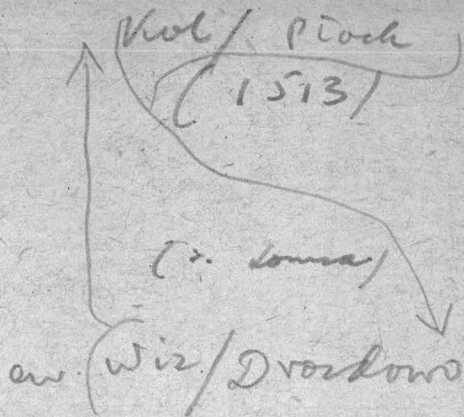 Kol / Płock
(1513)
(z. Łomża)
aw. (Wiz / Drozdowo